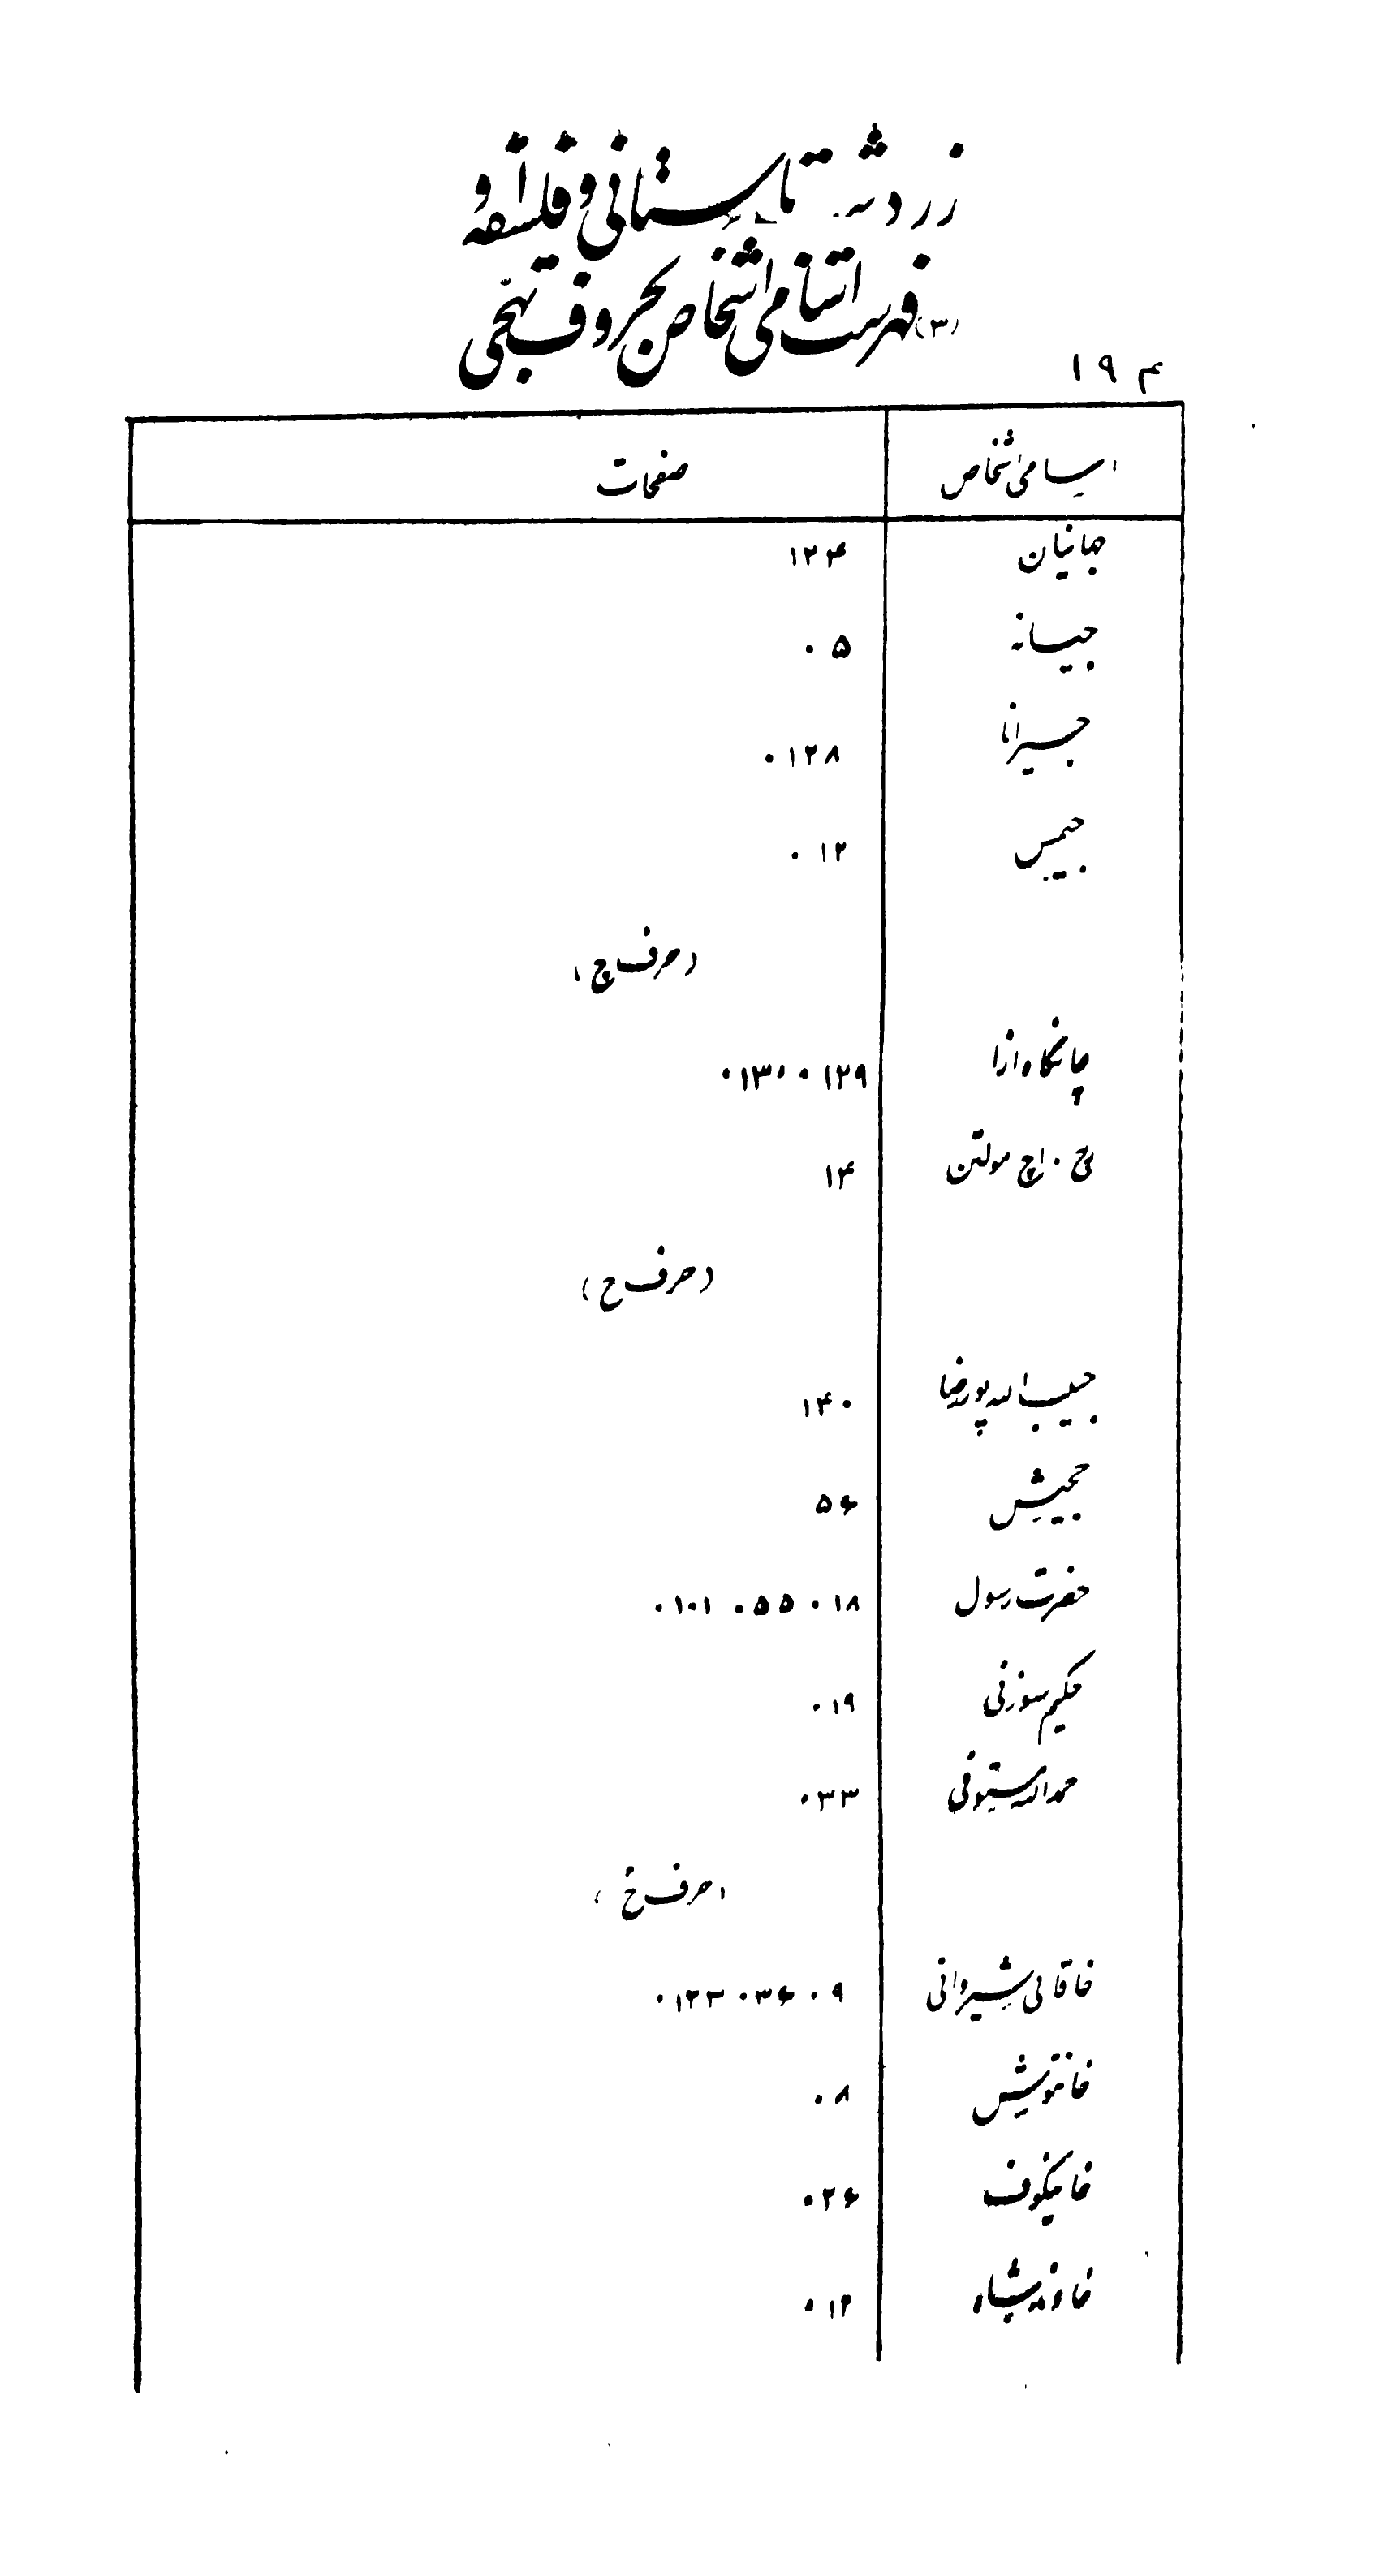 زردشت باستانی و فلسفه او
(۳) فهرست اسامی اشخاص بحروف تهجی
۱۹۴
اسامی اشخاص صفحات
جهانیان ۱۲۴
جیسانه ۵۰
جیسرانا ۱۲۸۰
جیمس ۱۲۰
(حرف چ)
چانگاه ازا ۱۲۹۰ ۱۳۰۰
چ۰ اچ مولتن ۱۴
(حرف ح)
حبیب الله پوررضا ۱۴۰
حبیش ۵۶
حضرت رسول ۱۸۰ ۵۵۰ ۱۰۱۰
حکیم سوزنی ۱۹۰
حمدالله مستوفی ۳۳۰
(حرف خ)
خاقانی شیروانی ۹۰ ۳۶۰ ۱۲۳۰
خانتویش ۸۰
خانیکوف ۲۶۰
خاوندشاه ۱۲۰